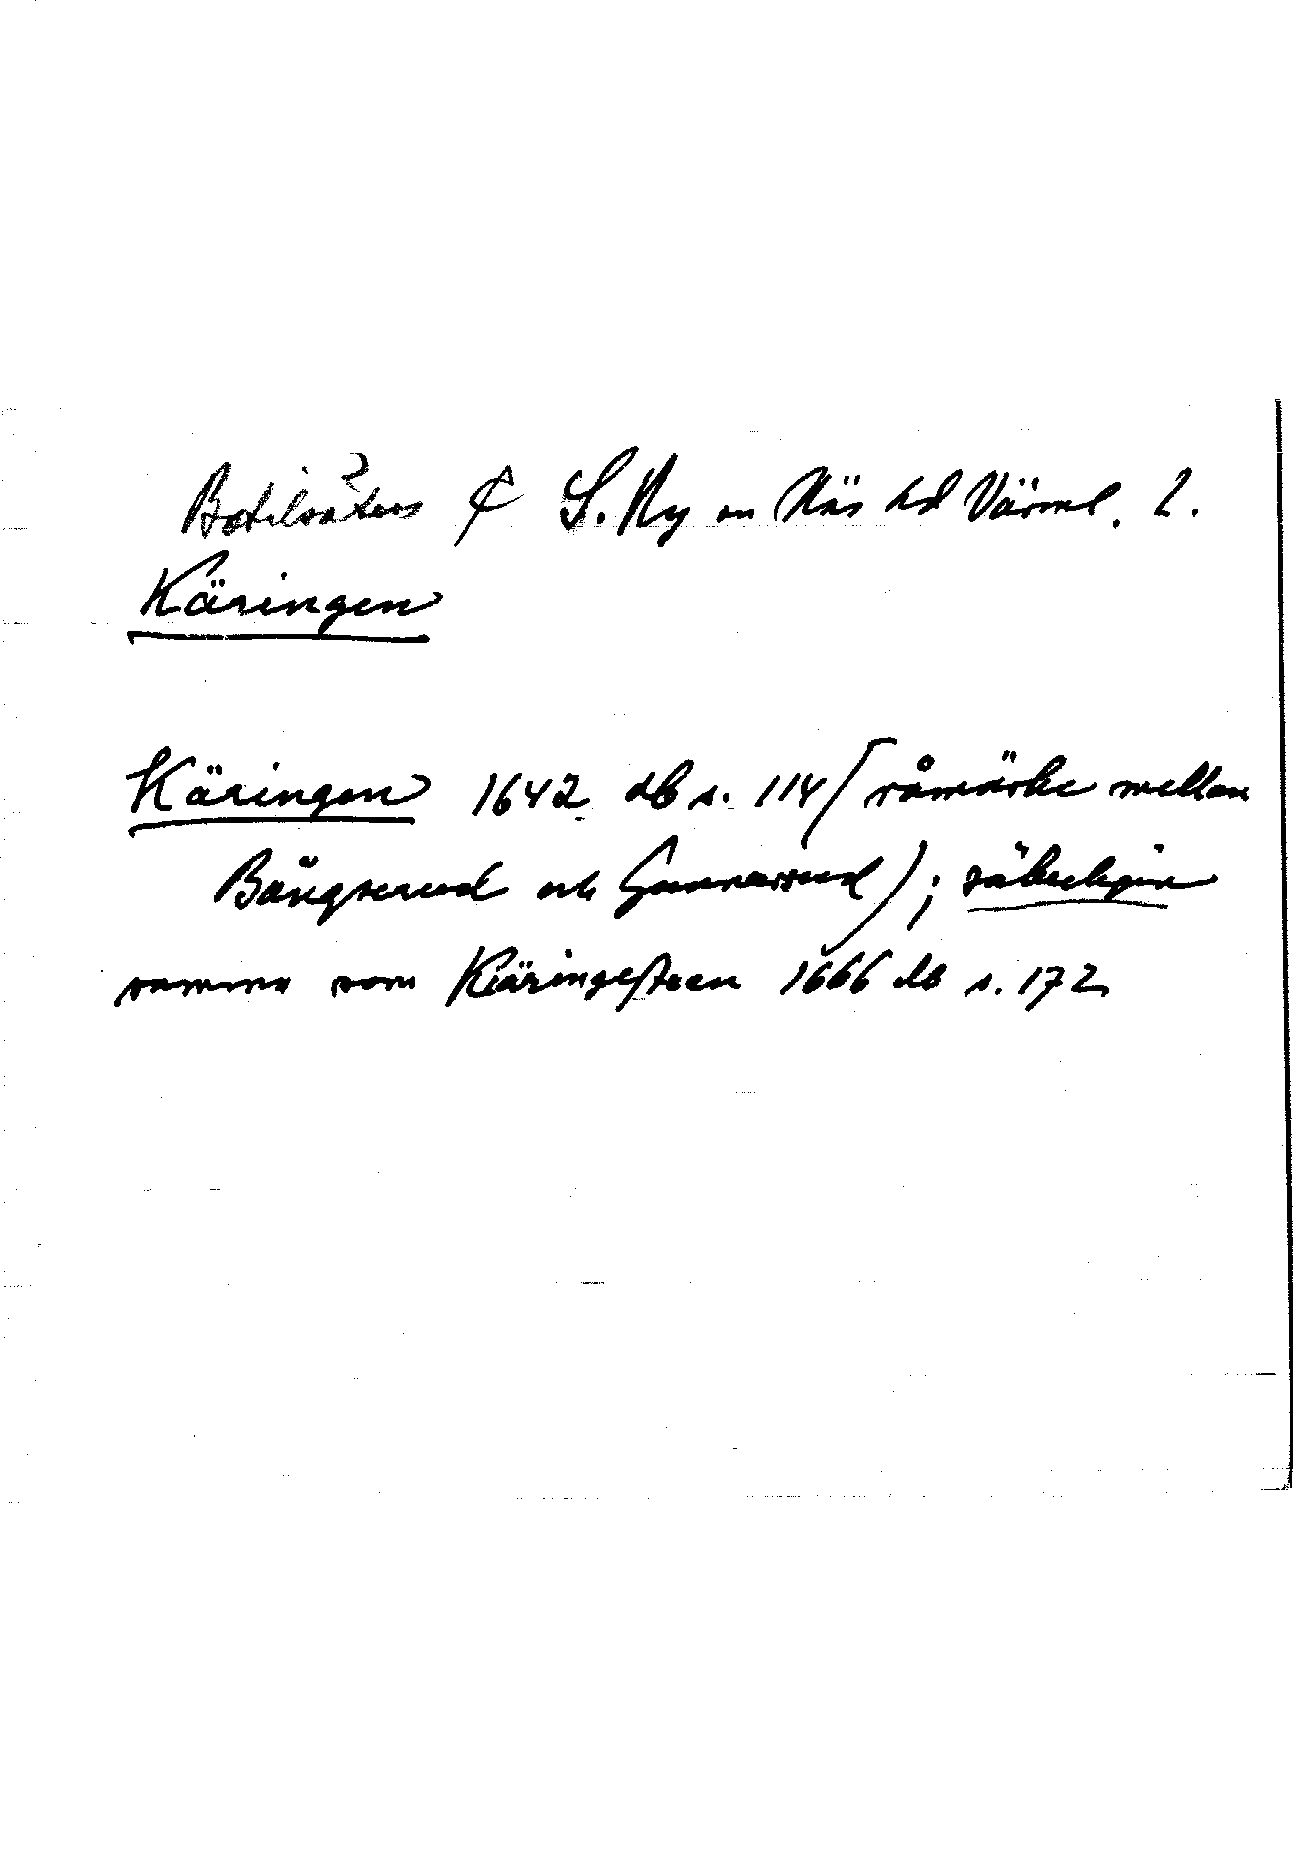 Botilsäters & S. Ny sn Näs hd Värml. l.
Käringen
Käringen 1642 db s. 114 (råmärke mellan
Bångserud och Gunnarsrud); säkerligen
samma som Kiäringesteen 1666 db s. 172